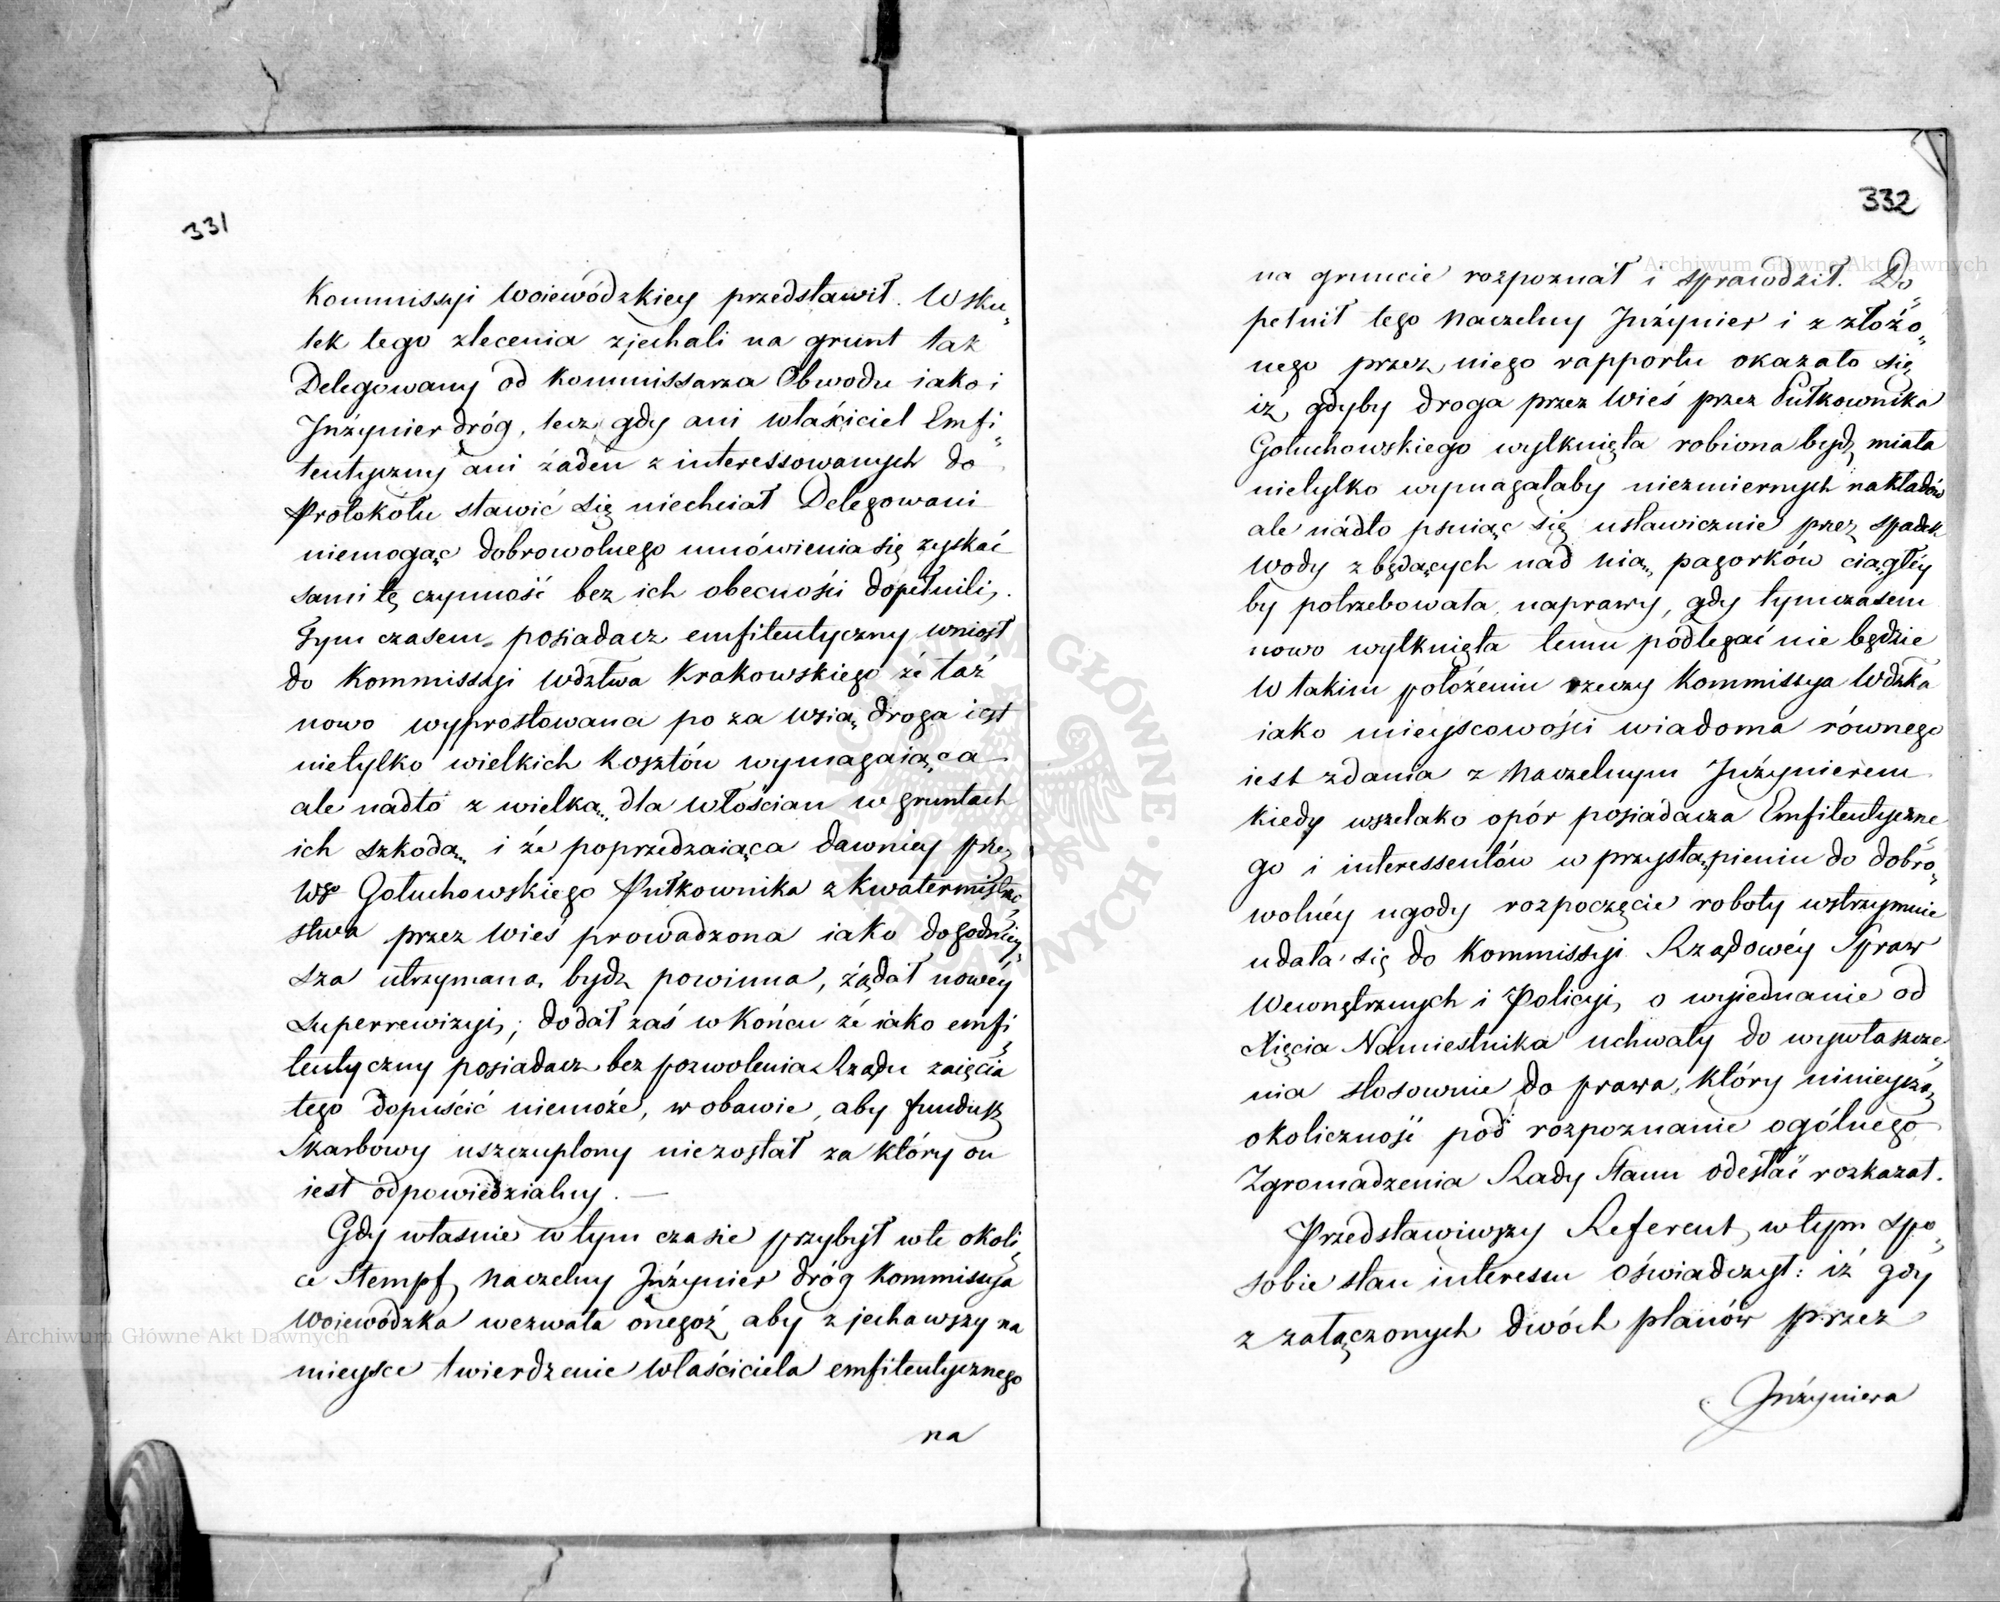 331
Kommissyi Woiewódzkiey przedstawił. W sku„
tek tego zlecenia zjechali na grunt taż
Delegowany od Kommissarza Obwodu iako i
Inżynier dróg, lecz gdy ani właściciel Emfi„
teutyczny ani żaden z interessowanych do
Protokołu stawić się niechciał Delegowani
niemogąc dobrowolnego umówienia się zyskać
sami tę czynność bez ich obecności dopełnili,.
Tym czasem posiadacz emfiteutyczny wniosł
do Kommissyi Wdztwa Krakowskiego że taż
nowo wyprostowana po za wsią droga iest
nietylko wielkich kosztów wymagaiąca
ale nadto z wielką dla włościan w gruntach
ich szkodą i że poprzedzaiąca dawniey przez
Wgo Gołuchowskiego Pułkownika z Kwatermistrzo„
stwa przez wieś prowadzona iako dogodniey„
sza utrzymana bydź powinna, żądał nowéy
superrewizyi; dodał zaś w końcu że iako emfi„
teutyczny posiadacz bez pozwolenia Rządu zaięcia
tego dopuścić niemoże, w obawie, aby fundusz
Skarbowy uszczuplony niezostał za który on
iest odpowiedzialny. —
Gdy własnie w tym czasie przybył w te okoli„
ce Stempf Naczelny Inżynier dróg Kommissyia
Woiewódzka wezwała onegoż aby zjechawszy na
mieysce twierdzenie właściciela emfiteutycznego
na
332
na gruncie rozpoznał i sprawdził. Do„
pełnił tego Naczelny Inżynier i z złożo„
nego przez niego rapportu okazało się
iż gdyby droga przez wieś przez Pułkownika
Gołuchowskiego wytknięta robiona bydź miała
nietylko wymagałaby niezmiernych nakładów
ale nadto psuiąc się ustawicznie przez spadek
wody z będących nad nią pagorków ciągłéy
by potrzebowała naprawy, gdy tymczasem
nowo wytknięta temu podlegać nie będzie
W takim położeniu rzeczy Kommissya Wdzka
iako mieyscowości wiadoma równego
iest zdania z Naczelnym Inżynierem
kiedy wszelako opór posiadacza Emfiteutyczne„
go i interessentów w przystąpieniu do dobro„
wolnéy ugody rozpoczęcie roboty wstrzymuie
udała się do Kommissyi Rządowéy Spraw
Wewnętrznych i Policyi, o wyiednanie od
Xięcia Namiestnika uchwały do wywłaszcze„
nia stosownie do prawa, który ninieyszą
okoliczność pod rozpoznanie ogólnego
Zgromadzenia Rady Stanu odesłać rozkazał.
Przedstawiwszy Referent w tym spo„
sobie stan interessu oświadczył: iż gdy
z załączonych dwóch planów przez
Inżyniera
Archiwum Główne Akt Dawnych
Archiwum Główne Akt Dawnych